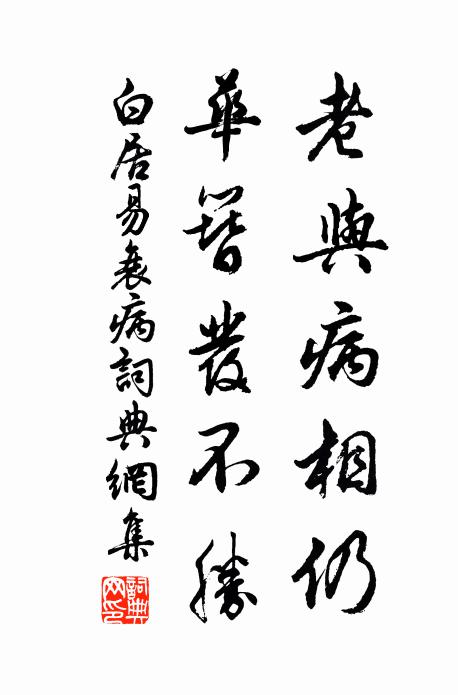 老與病相仍
華簪發不勝
白居易衰病詞典網集
詞典網印